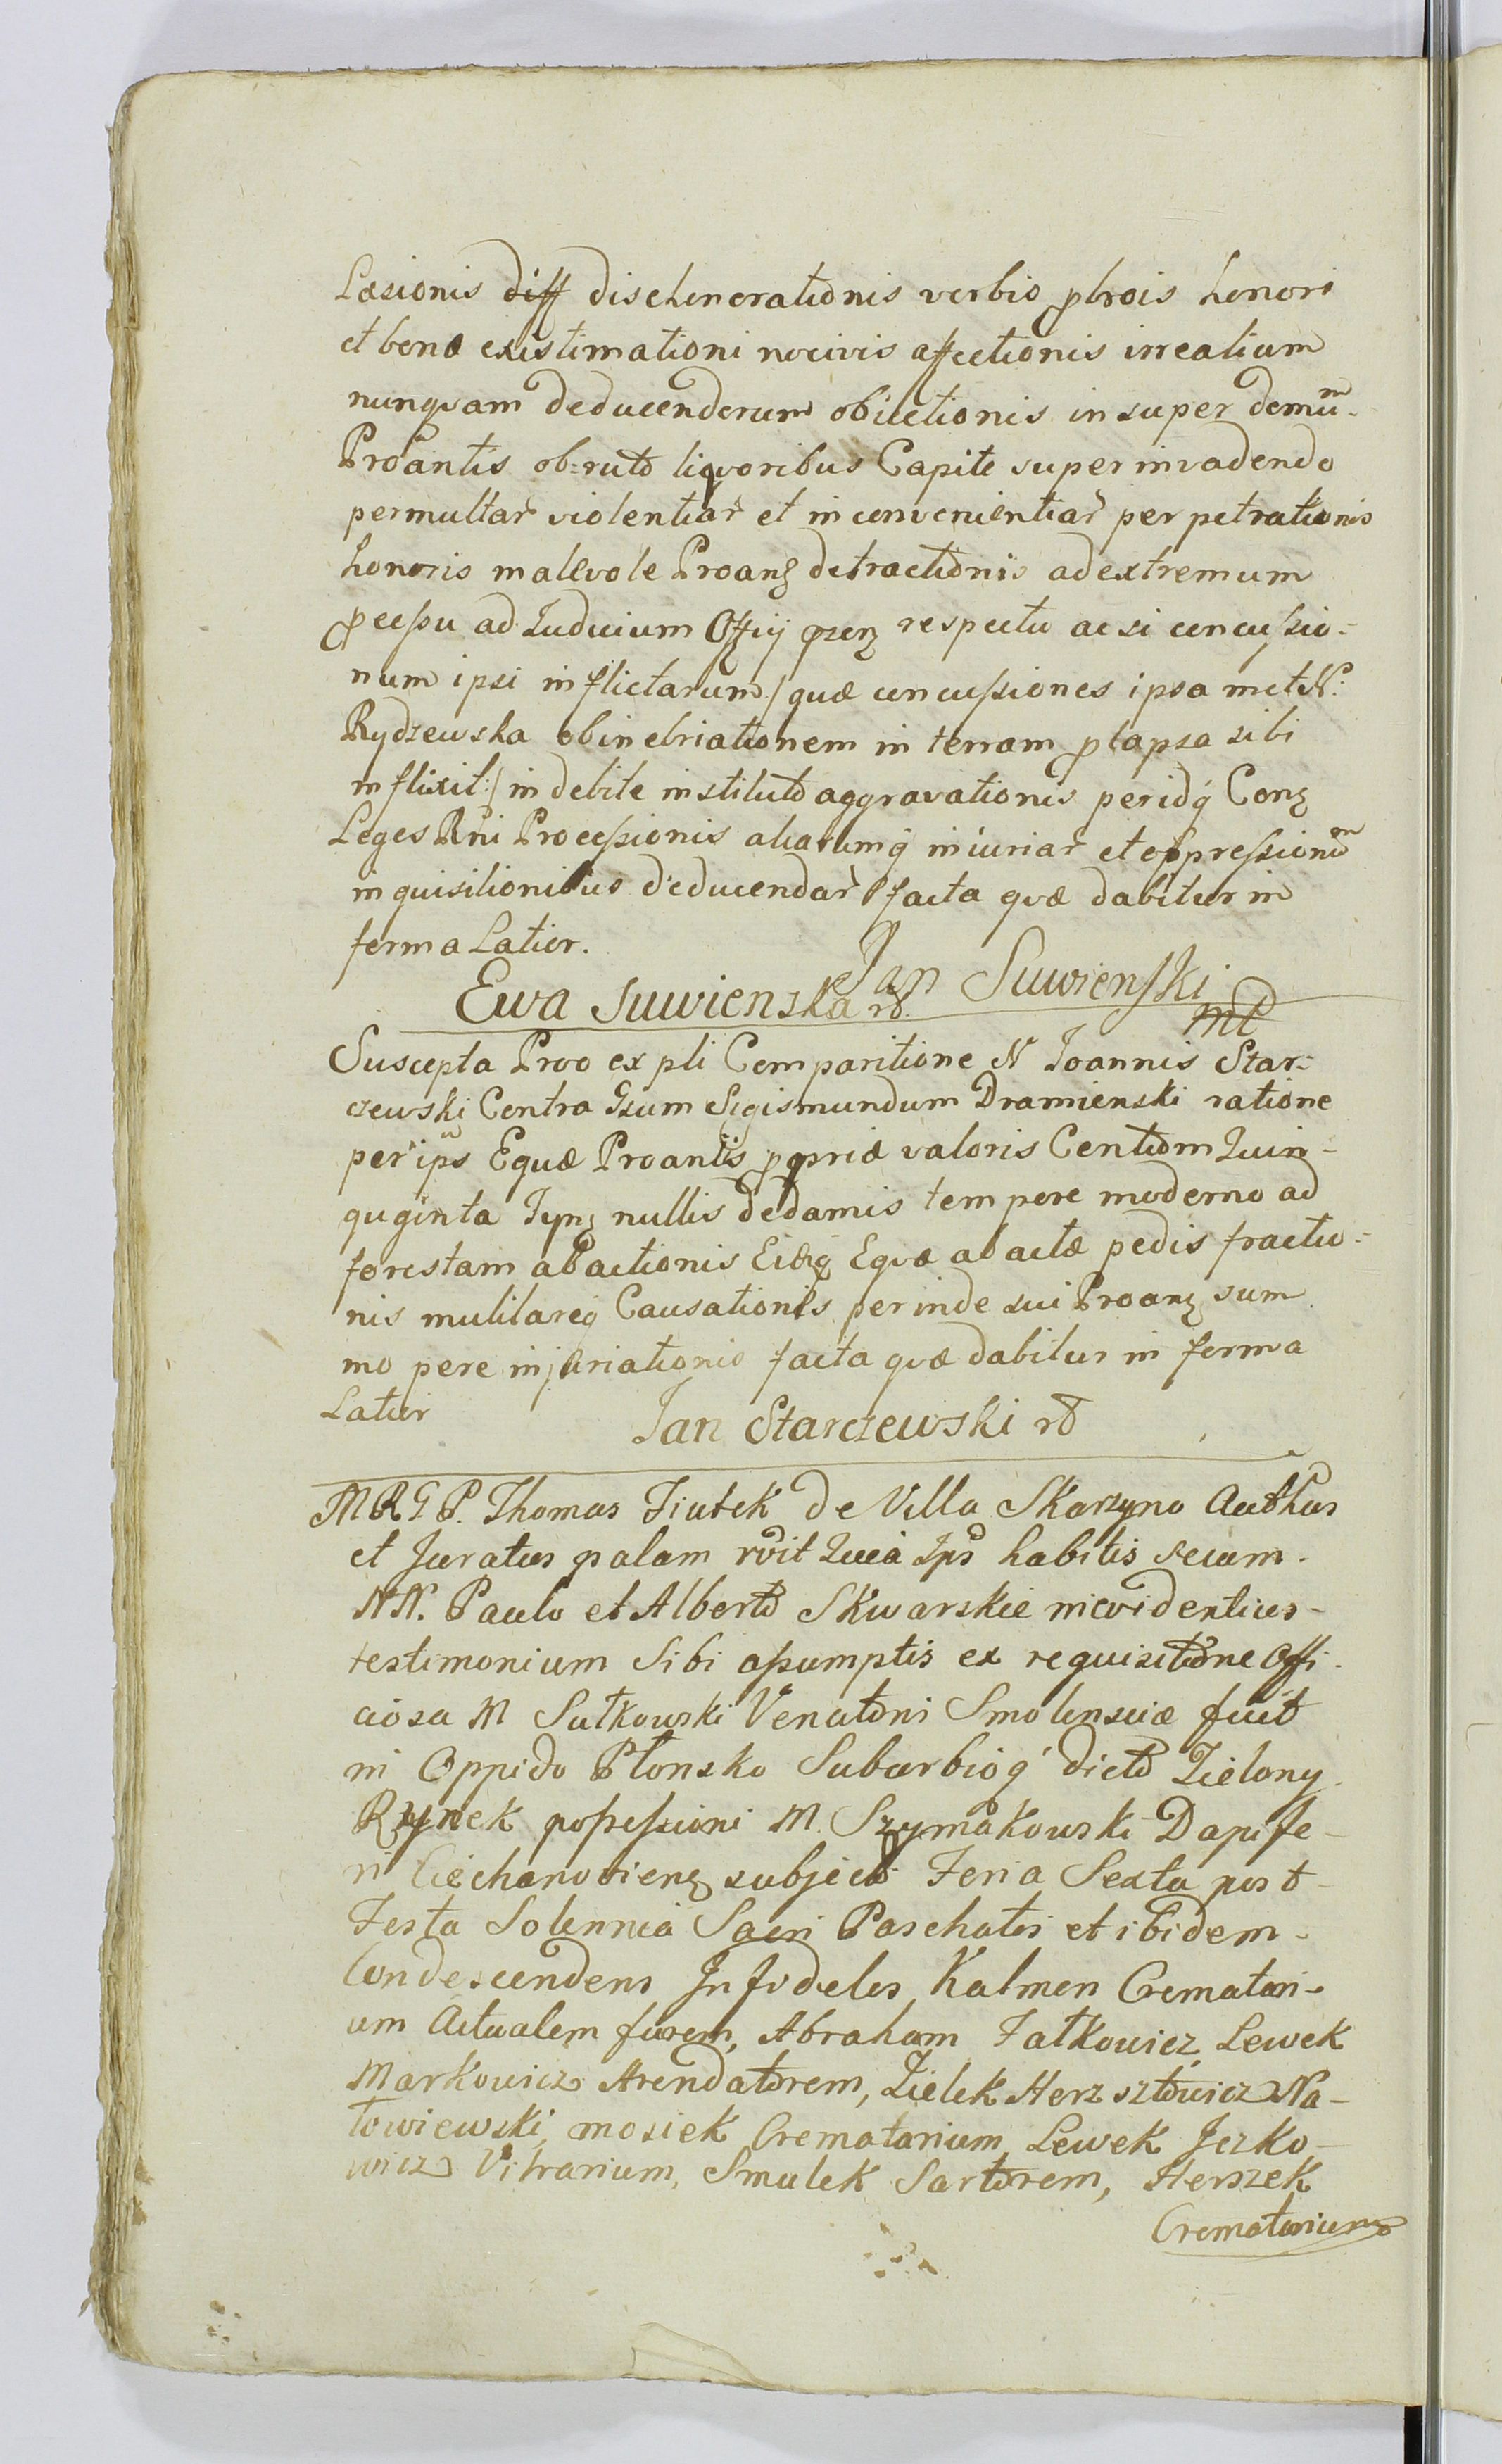 Læsionis diff dischonorationis verbis probrois honori
et bonæ existimationi nocivis affectionis irrealium
nunquam deducendorum obiectionis in super domu͞m
Proantis ob=ruto liquoribus Capite super invadendo
permultar̃ violentiar̃ et inconvenientiar̃ perpetrationis
honoris malevole Proanz detractionis ad extremum
pcessu ad Judicium Offij prnz respectu ac si concussio=
num ipsi inflictarum / quæ concussiones ipsa met N:
Rydzewska ob inebriationem in terram plapsa sibi
inflixit:/ indebite instituto aggravationis per idq́ Conz
Leges Rni Processionis aliarumq́ iniuriar̃ et oppressionu͞m
inquisitionibus deducendar̃ facta quæ dabitur in
forma Latior.
Jan Suwienski
Ewa Suwienska rδ. mp
Suscepta Proo ex pli Comparitione N Joannis Star=
czewski Contra Gsum Sigismundum Dramienski ratione
per ips Equæ Proantis ppriæ valoris Centom Quin=
quginta Tynz nullis de damis tempore moderno ad
forestam abactionis Eidzq́ Equæ abactæ pedis fractio=
nis mutilareq́ Causationis perinde sui Proanz sum
mo pere injuriationis facta quæ dabitur in forma
Latior
Jan Starczewski rδ
MRGP. Thomas Fiutek de Villa Skarzyno Authus
et Juratus palam rvit Quia Ips habitis secum.
NN. Paulo et Alberto Skwarskie in evidentius-
testimonium Sibi assumptis ex requisitione Offi.
ciosa M Sutkowski Venatoris Smolensciæ fuit
in Oppido Płonsko Suburbioq́ dicto Zielony
Rynek possessioni M. Szymakowski Dapife-
ri Ciechanovienz subjecto Feria Sexta post-
Festa Solennia Sacri Paschatis et ibidem-
Condescendens Infideles Kalmen Cremator-
um Actualem furem, Abraham Fałkowicz, Lewek
Markowicz Arendatorem, Zielek Herszłowicz Na-
towiewski, mosiek Crematorium, Lewek Jezko-
wicz Vitrarium, Smulek Sartorem, Herszek
Crematorium